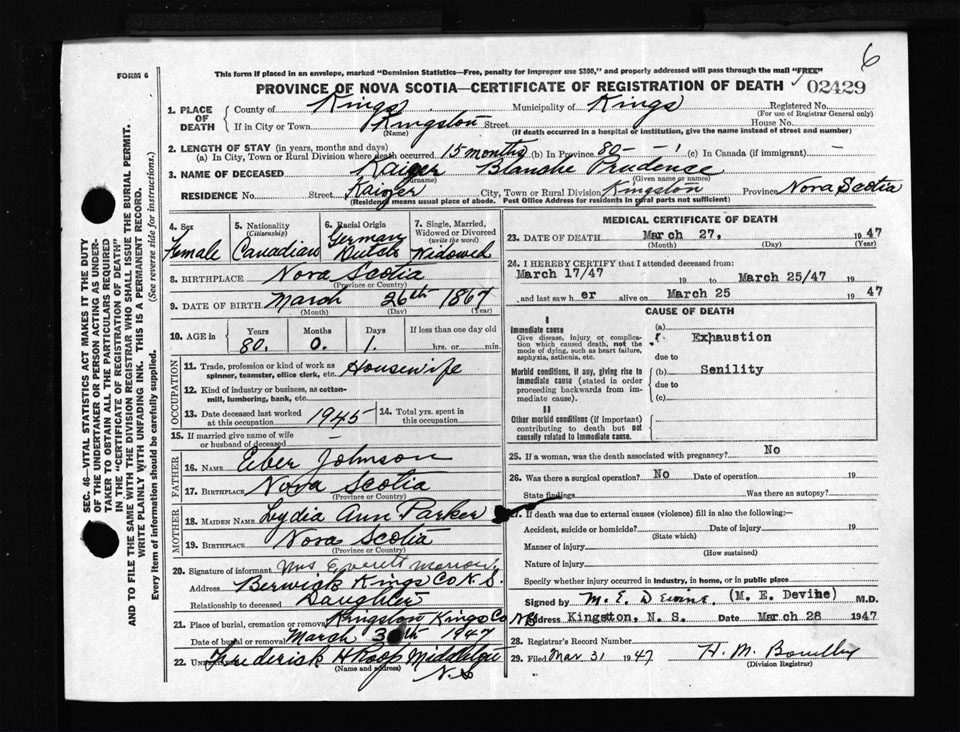 6
FORM 6
This form if placed in an envelope, marked "Dominion Statistics—Free, penalty for improper use $300," and properly addressed will pass through the mail "FREE"
PROVINCE OF NOVA SCOTIA—CERTIFICATE OF REGISTRATION OF DEATH
02429
SEC. 46—VITAL STATISTICS ACT MAKES IT THE DUTY
OF THE UNDERTAKER OR PERSON ACTING AS UNDER-
TAKER TO OBTAIN ALL THE PARTICULARS REQUIRED
IN THE "CERTIFICATE OF REGISTRATION OF DEATH"
AND TO FILE THE SAME WITH THE DIVISION REGISTRAR WHO SHALL ISSUE THE BURIAL PERMIT.
WRITE PLAINLY WITH UNFADING INK. THIS IS A PERMANENT RECORD.
Every item of information should be carefully supplied. (See reverse side for instructions.)
1. PLACE OF DEATH
County of Kings Municipality of Kings Registered No.
(For use of Registrar General only)
If in City or Town Kingston Street House No.
(Name) (If death occurred in a hospital or institution, give the name instead of street and number)
2. LENGTH OF STAY (in years, months and days)
(a) In City, Town or Rural Division where death occurred 15 months (b) In Province 80 – – (c) In Canada (if immigrant) —
3. NAME OF DECEASED Kaizer Blanche Prudence
(Surname) (Given name or names)
RESIDENCE No. Street Kaizer City, Town or Rural Division Kingston Province Nova Scotia
(Residence means usual place of abode. Post Office Address for residents in rural parts not sufficient)
4. Sex Female
5. Nationality (Citizenship) Canadian
6. Racial Origin German Dutch
7. Single, Married, Widowed or Divorced (write the word) Widowed
8. BIRTHPLACE Nova Scotia
(Province or Country)
9. DATE OF BIRTH March 26th 1867
(Month) (Day) (Year)
10. AGE in Years Months Days If less than one day old
80. 0. 1. hrs. or min.
OCCUPATION
11. Trade, profession or kind of work as spinner, teamster, office clerk, etc. Housewife
12. Kind of industry or business, as cotton-mill, lumbering, bank, etc.
13. Date deceased last worked at this occupation 1945
14. Total yrs. spent in this occupation
15. If married give name of wife or husband of deceased —
FATHER
16. NAME Eiber Johnson
17. BIRTHPLACE Nova Scotia
(Province or Country)
MOTHER
18. MAIDEN NAME Lydia Ann Parker
19. BIRTHPLACE Nova Scotia
(Province or Country)
20. Signature of informant Mrs Everett
Address Berwick Kings Co N.S.
Relationship to deceased Daughter
21. Place of burial, cremation or removal Kingston Kings Co NS
Date of burial or removal March 30th 1947
22. Undertaker Frederick H Roop Middleton
(Name and address) N.S
MEDICAL CERTIFICATE OF DEATH
23. DATE OF DEATH March 27, 1947
(Month) (Day) (Year)
24. I HEREBY CERTIFY that I attended deceased from:
March 17/47 19 to March 25/47 19
and last saw her alive on March 25 1947
CAUSE OF DEATH
I
Immediate cause
Give disease, injury or complication which caused death, not the mode of dying, such as heart failure, asphyxia, asthenia, etc.
(a) Exhaustion
due to
Morbid conditions, if any, giving rise to immediate cause (stated in order proceeding backwards from immediate cause).
(b) Senility
due to
(c)
II
Other morbid conditions (if important) contributing to death but not causally related to immediate cause.
25. If a woman, was the death associated with pregnancy? No
26. Was there a surgical operation? No Date of operation 19
State findings Was there an autopsy?
27. If death was due to external causes (violence) fill in also the following:—
Accident, suicide or homicide? Date of injury 19
(State which)
Manner of injury
(How sustained)
Nature of injury
Specify whether injury occurred in industry, in home, or in public place
Signed by M. E. Devine, (M. E. Devine) M.D.
Address Kingston, N. S. Date March 28 1947
28. Registrar's Record Number
29. Filed Mar 31 1947 H. M.
(Division Registrar)